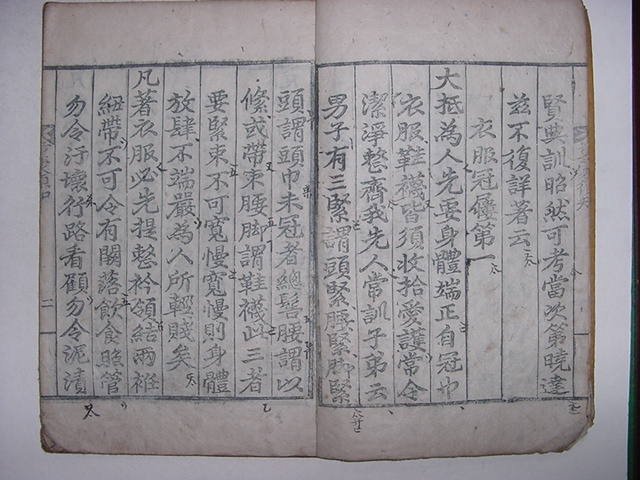 賢典訓昭然可考當次第曉達
茲不復詳著云
衣服冠屨第一
大抵為人先要身體端正自冠巾
衣服鞋襪皆須收拾愛護常令
潔淨整齊我先人常訓子弟云
男子有三緊謂頭緊腰緊脚緊
頭謂頭巾未冠者總髻腰謂以
絛或帶束腰脚謂鞋襪此三者
要緊束不可寬慢寬慢則身體
放肆不端嚴為人所輕賤矣
凡著衣服必先提整衿領結兩袵
紐帶不可令有闕落飲食照管
勿令汙壞行路看顧勿令泥漬